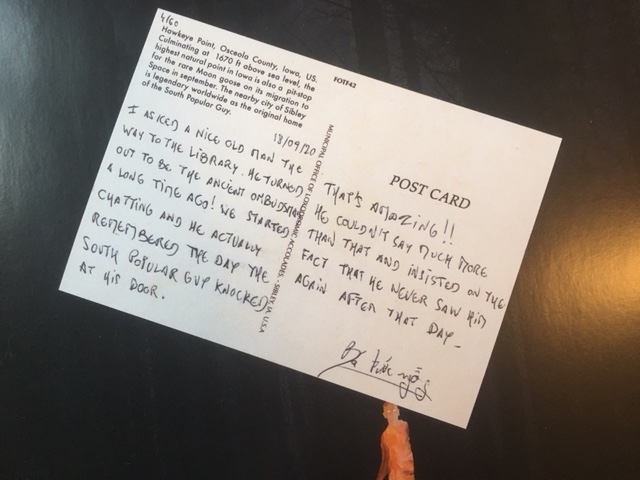 4/60
Hawkeye Point, Osceola County, Iowa, US.
Culminating at 1670 ft above sea level, the
highest natural point in Iowa is also a pit-stop
for the rare Moon goose on its migration to
Space in september. The nearby city of Sibley
is legendary worldwide as the original home
of the South Popular Guy.
18/09/20
I ASKED A NICE OLD MAN THE
WAY TO THE LIBRARY. HE TURNED
OUT TO BE THE ANCIENT OMBUDSMAN
A LONG TIME AGO! WE STARTED
CHATTING AND HE ACTUALLY
REMEMBERED THE DAY THE
SOUTH POPULAR GUY KNOCKED
AT HIS DOOR.
MUNICIPAL OFFICE OF ACCOLADES - SIBLEY, IA, USA
FOTF42
POST CARD
THAT'S AMAZING!!
HE COULDN'T SAY MUCH MORE
THAN THAT AND INSISTED ON THE
FACT THAT HE NEVER SAW HIM
AGAIN AFTER THAT DAY_